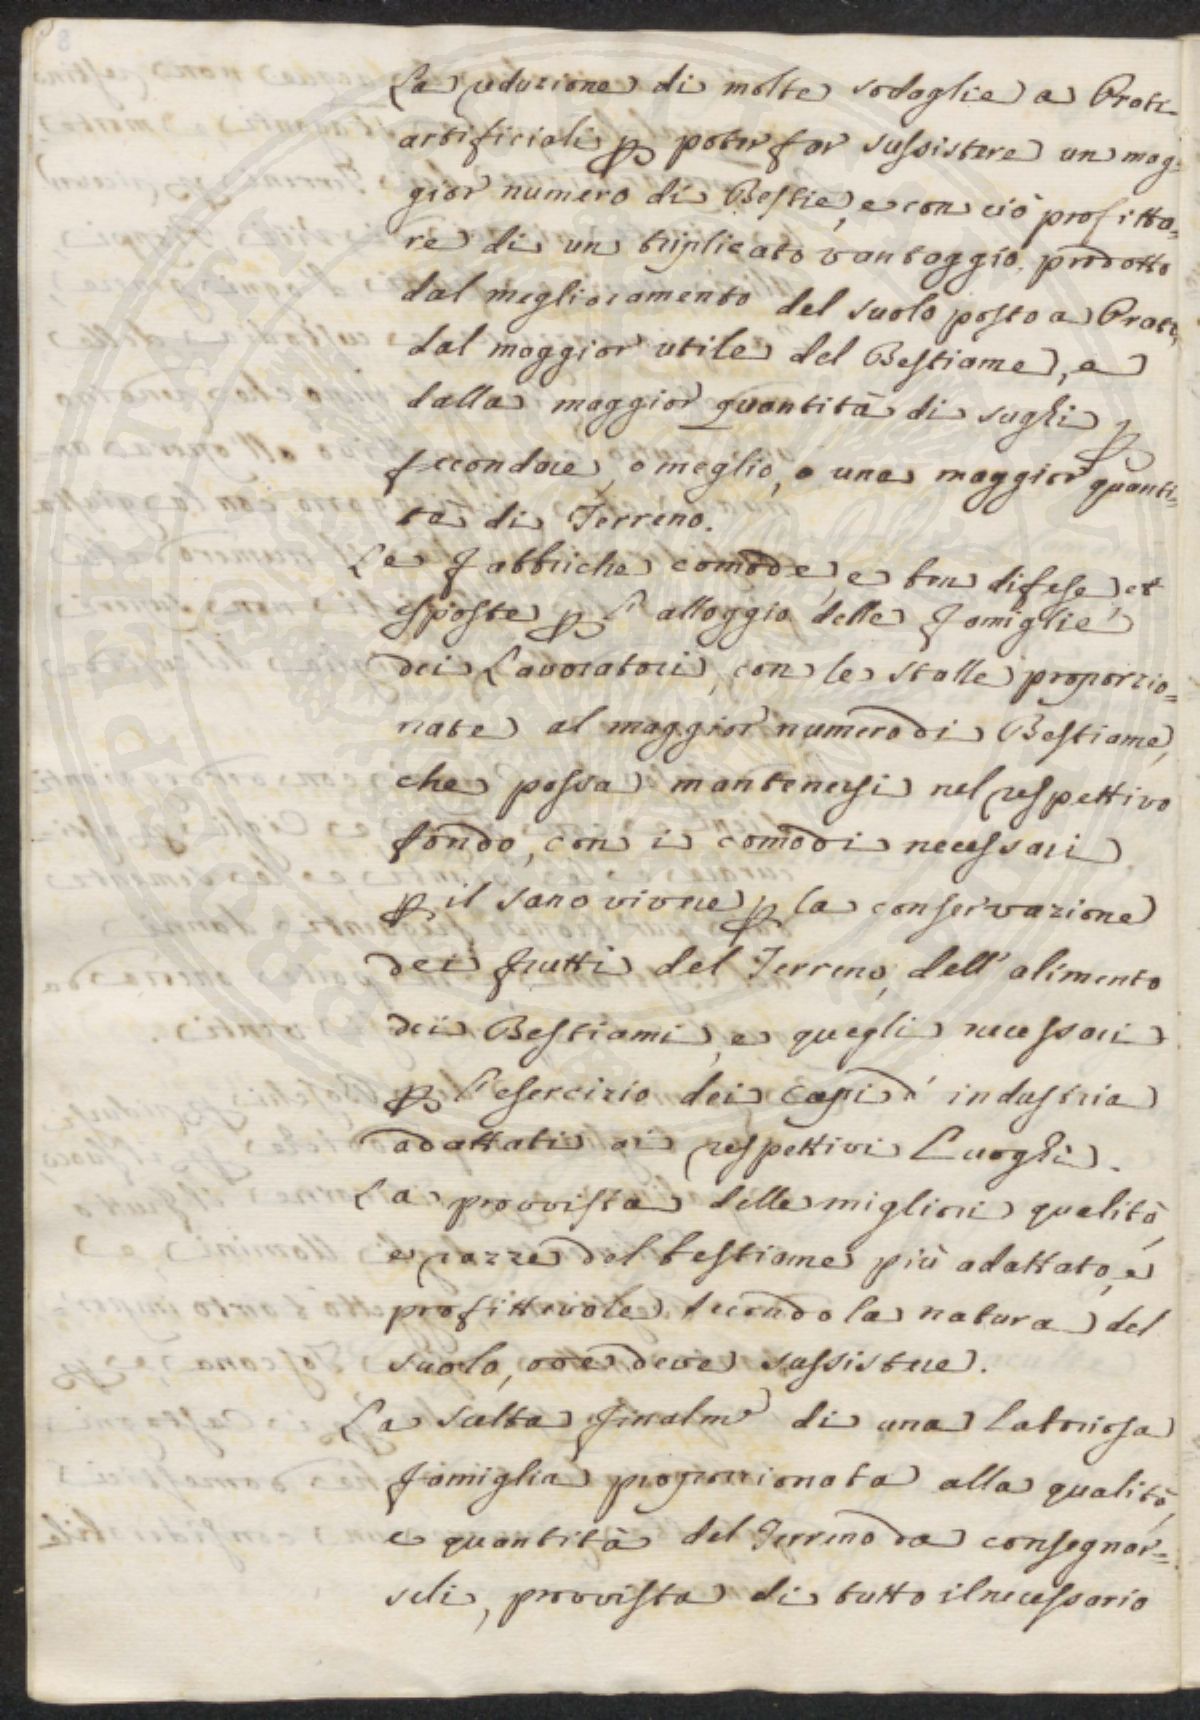 La reduzione di molte sodaglie a Prati
artificiali p poter far sussistere un mag=
gior numero di Bestie, e con ciò profitta=
re di un triplicato vantaggio prodotto
dal miglioramento del suolo posto a Prati,
dal maggior utile del Bestiame, e
dalla maggior quantità di sughi p
fecondare, o meglio, o una maggior quanti=
tà di Terreno.
Le Fabbriche comode, e ben difese et
esposte p l'alloggio delle Famiglie
dei Lavoratori, con le stalle proporzio=
nate al maggior numero di Bestiame,
che possa mantenersi nel respettivo
fondo, con i comodi necessari
p il sano vivere, p la conservazione
dei frutti del Terreno, dell'alimento
dei Bestiami, e quegli necessari
p l'esercizio dei capi d'industria
adattati ai respettivi Luoghi.
La provvista delle migliori qualità,
e razze del bestiame più adattato, e
profittevole secondo la natura del
suolo, ove deve sussistere.
La Scelta Finalm.e di una Laboriosa
famiglia proporzionata alla qualità,
e quantità del Terreno da consegnar=
seli, provvista di tutto il necessario